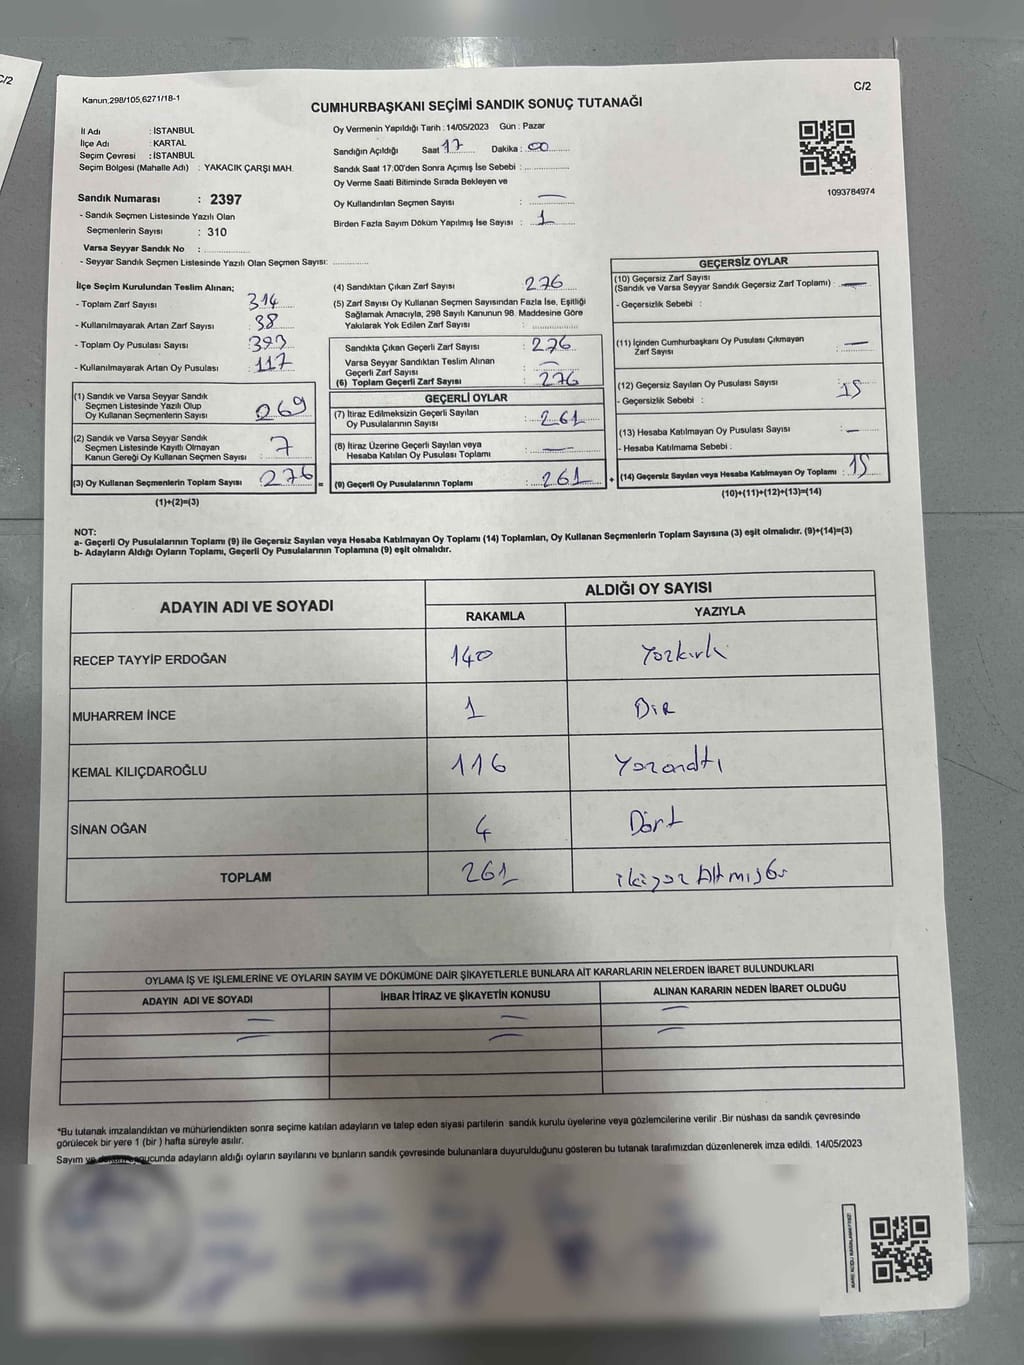 C/2
Kanun;298/105,6271/18-1
C/2
CUMHURBAŞKANI SEÇİMİ SANDIK SONUÇ TUTANAĞI
İl Adı : İSTANBUL
İlçe Adı : KARTAL
Seçim Çevresi : İSTANBUL
Seçim Bölgesi (Mahalle Adı) : YAKACIK ÇARŞI MAH.
Sandık Numarası : 2397
- Sandık Seçmen Listesinde Yazılı Olan
Seçmenlerin Sayısı : 310
Varsa Seyyar Sandık No :
- Seyyar Sandık Seçmen Listesinde Yazılı Olan Seçmen Sayısı:
Oy Vermenin Yapıldığı Tarih : 14/05/2023 Gün : Pazar
Sandığın Açıldığı Saat 17 Dakika : 00
Sandık Saat 17:00'den Sonra Açımış İse Sebebi :
Oy Verme Saati Bitiminde Sırada Bekleyen ve
Oy Kullandırılan Seçmen Sayısı : —
Birden Fazla Sayım Döküm Yapılmış İse Sayısı : 1
1093784974
İlçe Seçim Kurulundan Teslim Alınan;
- Toplam Zarf Sayısı : 314
- Kullanılmayarak Artan Zarf Sayısı : 38
- Toplam Oy Pusulası Sayısı : 393
- Kullanılmayarak Artan Oy Pusulası : 117
(1) Sandık ve Varsa Seyyar Sandık
Seçmen Listesinde Yazılı Olup
Oy Kullanan Seçmenlerin Sayısı : 269
(2) Sandık ve Varsa Seyyar Sandık
Seçmen Listesinde Kayıtlı Olmayan
Kanun Gereği Oy Kullanan Seçmen Sayısı : 7
(3) Oy Kullanan Seçmenlerin Toplam Sayısı : 276
(1)+(2)=(3)
(4) Sandıktan Çıkan Zarf Sayısı : 276
(5) Zarf Sayısı Oy Kullanan Seçmen Sayısından Fazla İse, Eşitliği
Sağlamak Amacıyla, 298 Sayılı Kanunun 98. Maddesine Göre
Yakılarak Yok Edilen Zarf Sayısı :
Sandıkta Çıkan Geçerli Zarf Sayısı : 276
Varsa Seyyar Sandıktan Teslim Alınan
Geçerli Zarf Sayısı : —
(6) Toplam Geçerli Zarf Sayısı : 276
GEÇERLİ OYLAR
(7) İtiraz Edilmeksizin Geçerli Sayılan
Oy Pusulasının Sayısı : 261
(8) İtiraz Üzerine Geçerli Sayılan veya
Hesaba Katılan Oy Pusulası Toplamı : —
= (9) Geçerli Oy Pusulalarının Toplamı : 261
GEÇERSİZ OYLAR
(10) Geçersiz Zarf Sayısı
(Sandık ve Varsa Seyyar Sandık Geçersiz Zarf Toplamı) : —
- Geçersizlik Sebebi :
(11) İçinden Cumhurbaşkanı Oy Pusulası Çıkmayan
Zarf Sayısı : —
(12) Geçersiz Sayılan Oy Pusulası Sayısı : 15
- Geçersizlik Sebebi :
(13) Hesaba Katılmayan Oy Pusulası Sayısı : —
- Hesaba Katılmama Sebebi :
+ (14) Geçersiz Sayılan veya Hesaba Katılmayan Oy Toplamı : 15
(10)+(11)+(12)+(13)=(14)
NOT:
a- Geçerli Oy Pusulalarının Toplamı (9) ile Geçersiz Sayılan veya Hesaba Katılmayan Oy Toplamı (14) Toplamları, Oy Kullanan Seçmenlerin Toplam Sayısına (3) eşit olmalıdır. (9)+(14)=(3)
b- Adayların Aldığı Oyların Toplamı, Geçerli Oy Pusulalarının Toplamına (9) eşit olmalıdır.
ADAYIN ADI VE SOYADI
ALDIĞI OY SAYISI
RAKAMLA YAZIYLA
RECEP TAYYİP ERDOĞAN 140 Yüzkırk
MUHARREM İNCE 1 Bir
KEMAL KILIÇDAROĞLU 116 Yüzonaltı
SİNAN OĞAN 4 Dört
TOPLAM 261 ikiyüz Altmışbir
OYLAMA İŞ VE İŞLEMLERİNE VE OYLARIN SAYIM VE DÖKÜMÜNE DAİR ŞİKAYETLERLE BUNLARA AİT KARARLARIN NELERDEN İBARET BULUNDUKLARI
ADAYIN ADI VE SOYADI İHBAR İTİRAZ VE ŞİKAYETİN KONUSU ALINAN KARARIN NEDEN İBARET OLDUĞU
— — —
— — —
*Bu tutanak imzalandıktan ve mühürlendikten sonra seçime katılan adayların ve talep eden siyasi partilerin sandık kurulu üyelerine veya gözlemcilerine verilir .Bir nüshası da sandık çevresinde
görülecek bir yere 1 (bir ) hafta süreyle asılır.
Sayım ve sonucunda adayların aldığı oyların sayılarını ve bunların sandık çevresinde bulunanlara duyurulduğunu gösteren bu tutanak tarafımızdan düzenlenerek imza edildi. 14/05/2023